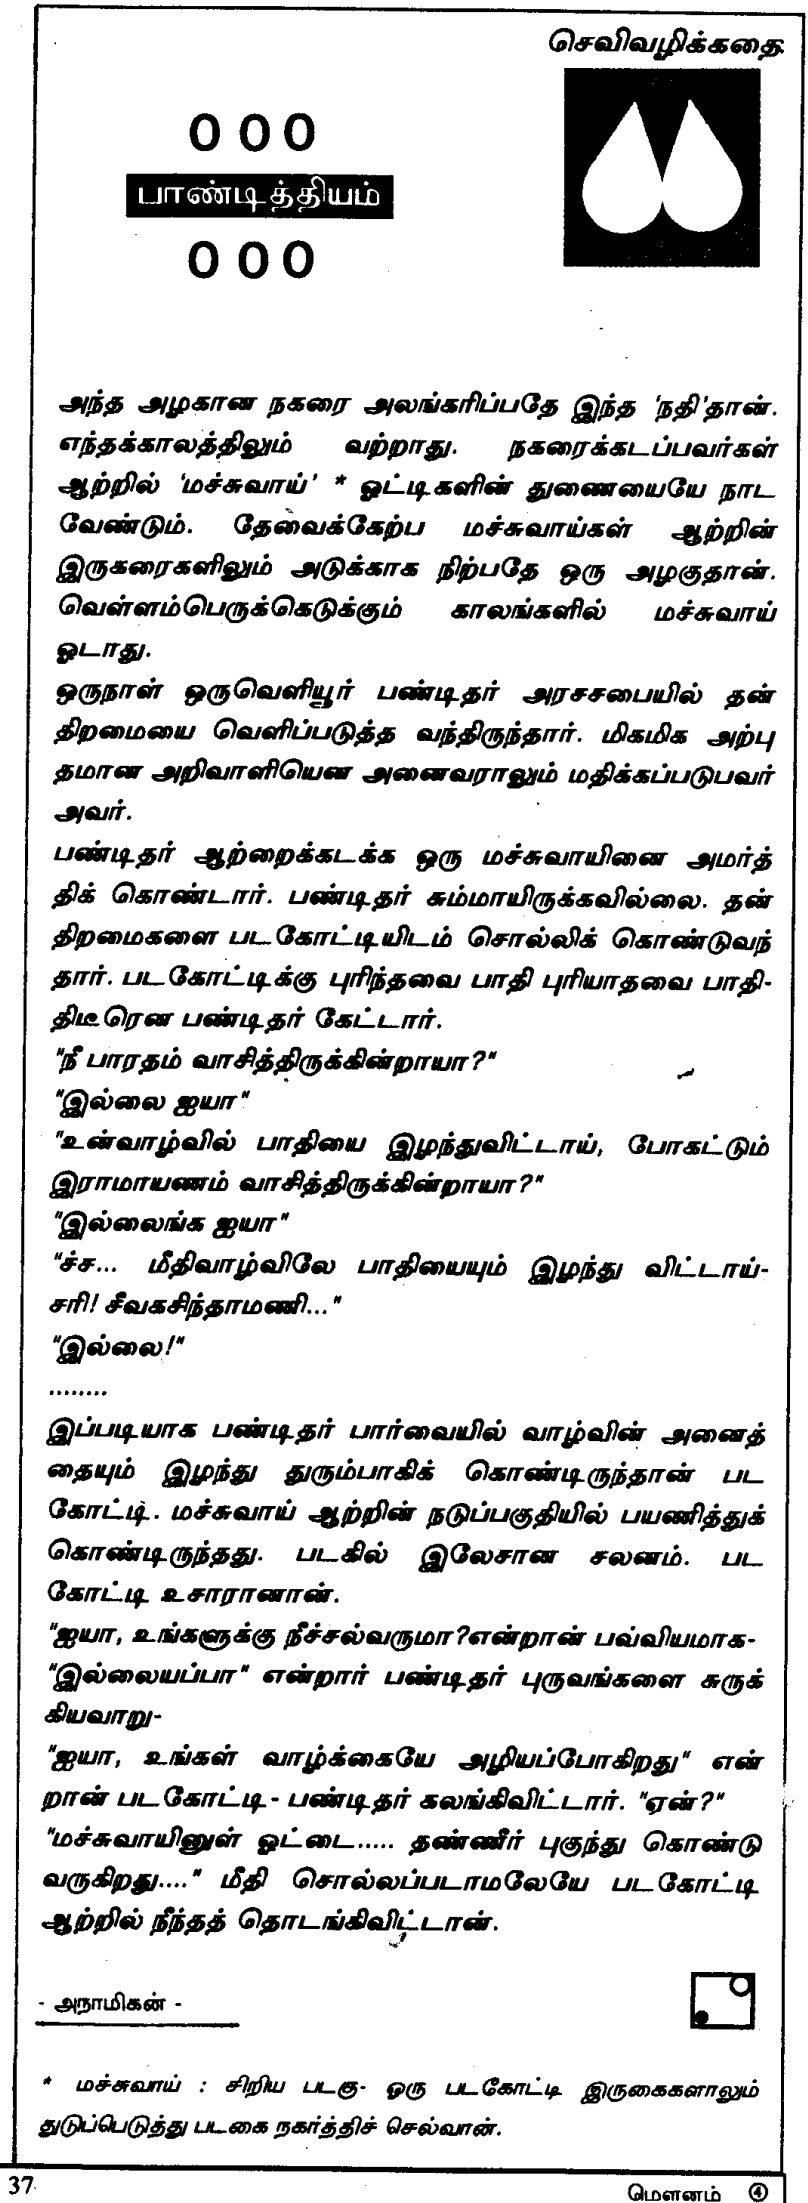 செவிவழிக்கதை
000
பாண்டித்தியம்
000
அந்த அழகான நகரை அலங்கரிப்பதே இந்த 'நதி'தான்.
எந்தக்காலத்திலும் வற்றாது. நகரைக்கடப்பவர்கள்
ஆற்றில் 'மச்சுவாய்' * ஓட்டிகளின் துணையையே நாட
வேண்டும். தேவைக்கேற்ப மச்சுவாய்கள் ஆற்றின்
இருகரைகளிலும் அடுக்காக நிற்பதே ஒரு அழகுதான்.
வெள்ளம்பெருக்கெடுக்கும் காலங்களில் மச்சுவாய்
ஓடாது.
ஒருநாள் ஒருவெளியூர் பண்டிதர் அரசசபையில் தன்
திறமையை வெளிப்படுத்த வந்திருந்தார். மிகமிக அற்பு
தமான அறிவாளியென அனைவராலும் மதிக்கப்படுபவர்
அவர்.
பண்டிதர் ஆற்றைக்கடக்க ஒரு மச்சுவாயினை அமர்த்
திக் கொண்டார். பண்டிதர் சும்மாயிருக்கவில்லை. தன்
திறமைகளை படகோட்டியிடம் சொல்லிக் கொண்டுவந்
தார். படகோட்டிக்கு புரிந்தவை பாதி புரியாதவை பாதி-
திடீரென பண்டிதர் கேட்டார்.
"நீ பாரதம் வாசித்திருக்கின்றாயா?"
"இல்லை ஐயா"
"உன்வாழ்வில் பாதியை இழந்துவிட்டாய், போகட்டும்
இராமாயணம் வாசித்திருக்கின்றாயா?"
"இல்லைங்க ஐயா"
"ச்ச... மீதிவாழ்விலே பாதியையும் இழந்து விட்டாய்-
சரி! சீவகசிந்தாமணி..."
"இல்லை!"
........
இப்படியாக பண்டிதர் பார்வையில் வாழ்வின் அனைத்
தையும் இழந்து துரும்பாகிக் கொண்டிருந்தான் பட
கோட்டி. மச்சுவாய் ஆற்றின் நடுப்பகுதியில் பயணித்துக்
கொண்டிருந்தது. படகில் இலேசான சலனம். பட
கோட்டி உசாரானான்.
"ஐயா, உங்களுக்கு நீச்சல்வருமா?என்றான் பவ்வியமாக-
"இல்லையப்பா" என்றார் பண்டிதர் புருவங்களை சுருக்
கியவாறு-
"ஐயா, உங்கள் வாழ்க்கையே அழியப்போகிறது" என்
றான் படகோட்டி - பண்டிதர் கலங்கிவிட்டார். "ஏன்?"
"மச்சுவாயினுள் ஓட்டை..... தண்ணீர் புகுந்து கொண்டு
வருகிறது...." மீதி சொல்லப்படாமலேயே படகோட்டி
ஆற்றில் நீந்தத் தொடங்கிவிட்டான்.
- அநாமிகன் -
* மச்சுவாய் : சிறிய படகு- ஒரு படகோட்டி இருகைகளாலும்
துடுப்பெடுத்து படகை நகர்த்திச் செல்வான்.
37
மௌனம் ④